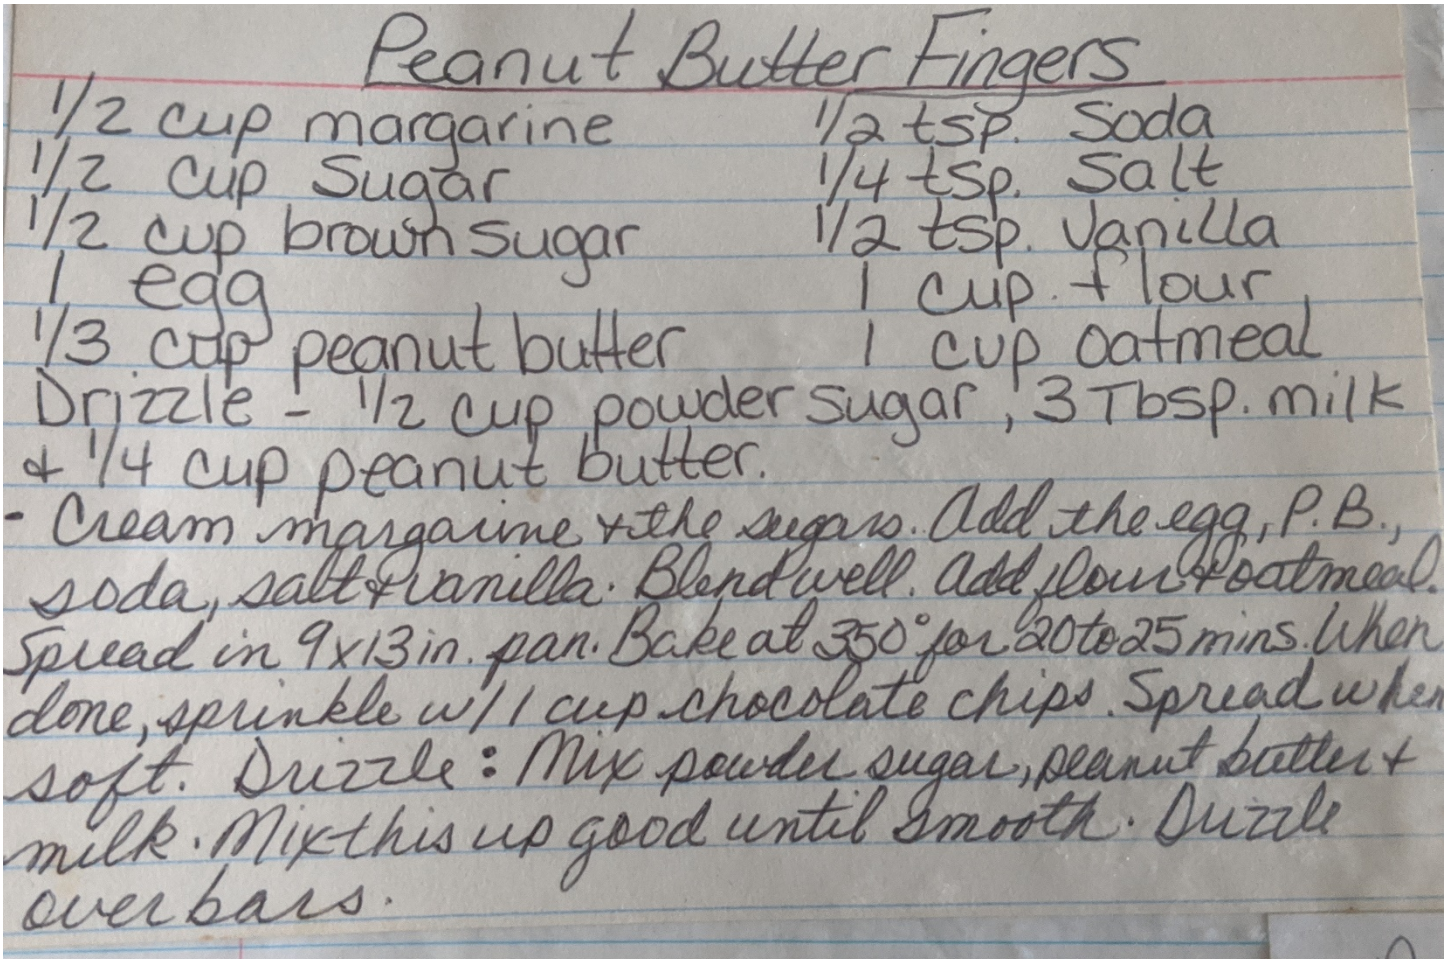 Peanut Butter Fingers
1/2 cup margarine 1/2 tsp. Soda
1/2 cup Sugar 1/4 tsp. Salt
1/2 cup brown sugar 1/2 tsp. Vanilla
1 egg 1 cup flour
1/3 cup peanut butter 1 cup oatmeal
Drizzle - 1/2 cup powder sugar, 3 Tbsp. milk
& 1/4 cup peanut butter.
- Cream margarine & the sugars. Add the egg, P.B.,
soda, salt & vanilla. Blend well. Add flour & oatmeal.
Spread in 9x13 in. pan. Bake at 350° for 20 to 25 mins. When
done, sprinkle w/ 1 cup chocolate chips. Spread when
soft. Drizzle: Mix powder sugar, peanut butter &
milk. Mix this up good until smooth. Drizzle
over bars.